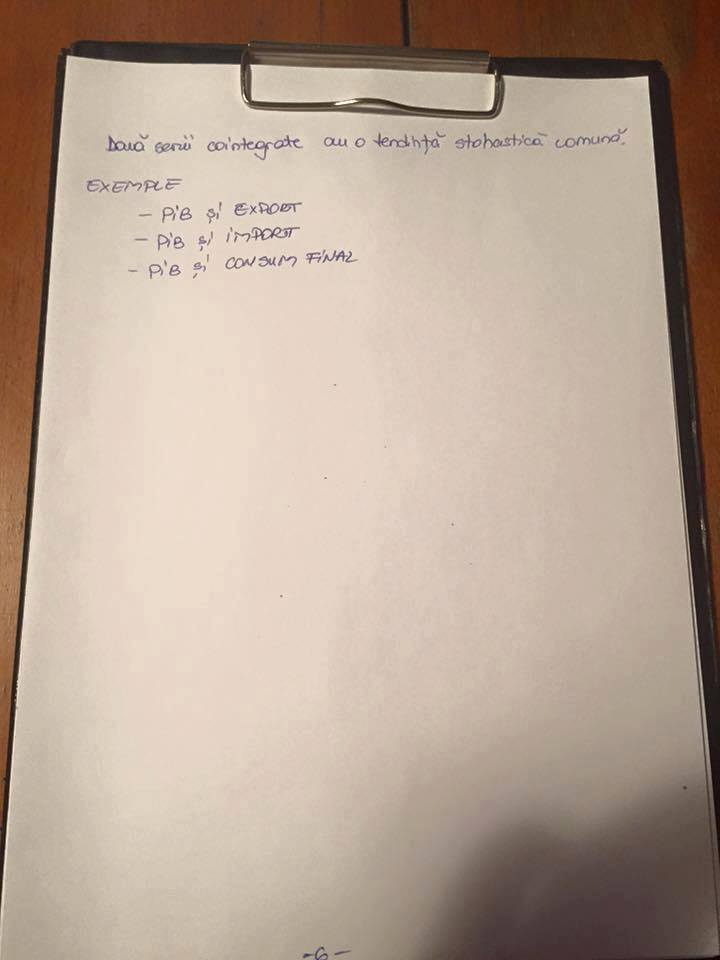 Două serii cointegrate au o tendință stohastică comună.
EXEMPLE
- PiB și EXPORT
- PiB și iMPORT
- PiB și CONSUM FiNAL
-6-